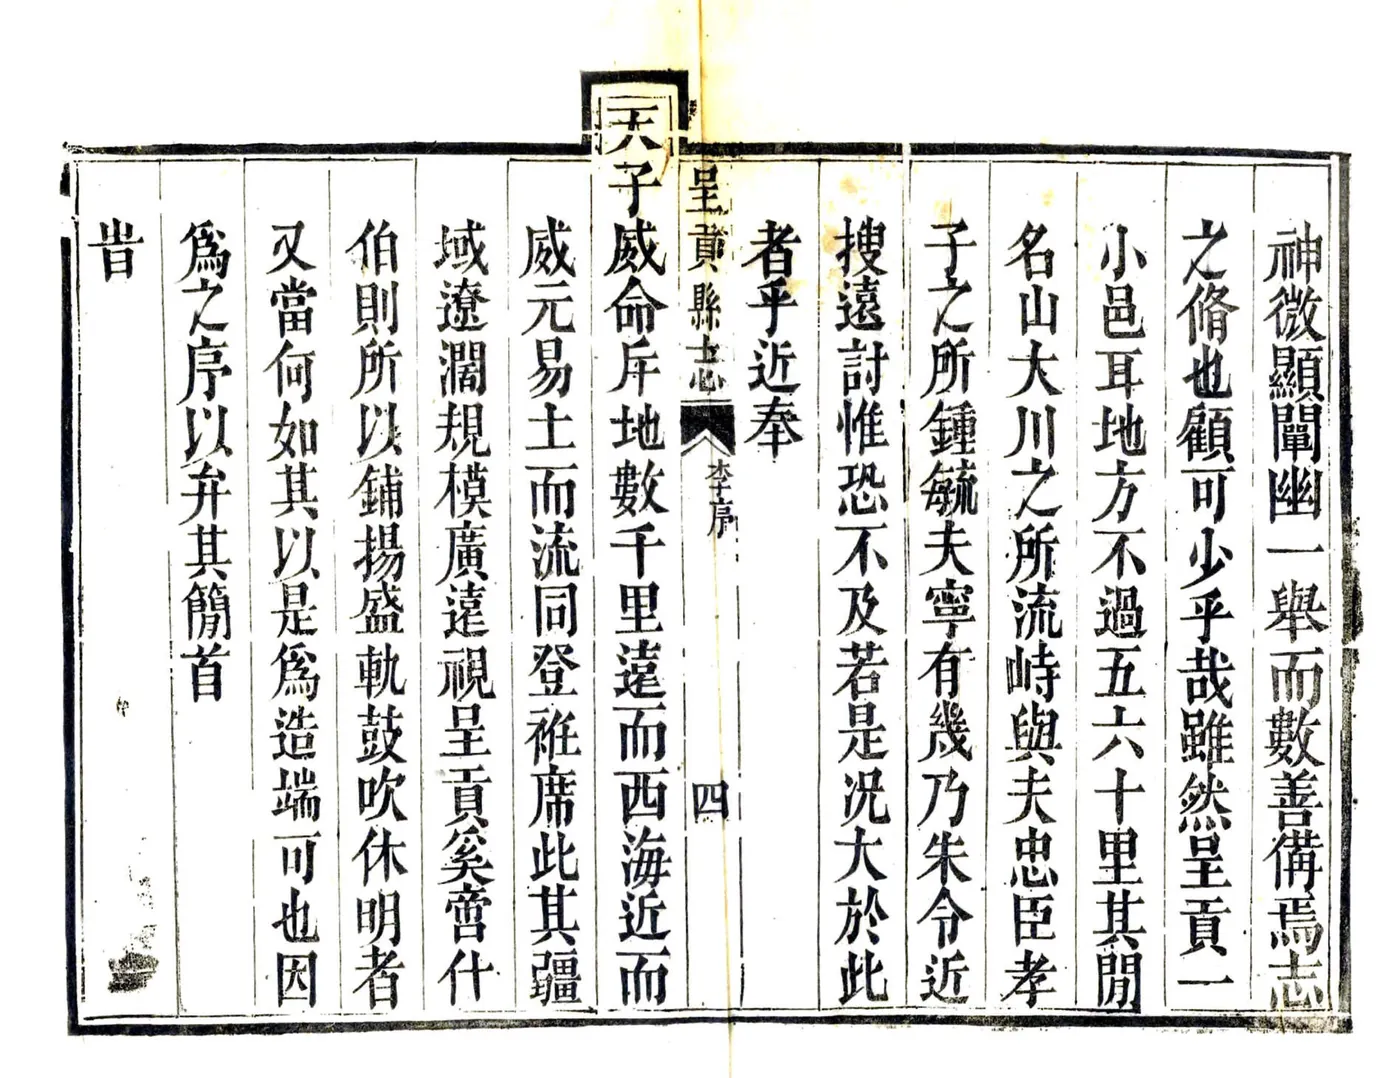 神微顯闡幽一舉而數善備焉志
之脩也顧可少乎哉雖然呈貢一
小邑耳地方不過五六十里其閒
名山大川之所流峙與夫忠臣孝
子之所鍾毓夫寧有幾乃朱令近
搜遠討惟恐不及若是况大於此
者乎近奉
呈貢縣志
李序
四
天子威命斥地數千里遠而西海近而
威元易土而流同登袵席此其疆
域遼濶規模廣遠視呈貢奚啻什
伯則所以鋪揚盛軌鼓吹休明者
又當何如其以是爲造端可也因
爲之序以弁其簡首
旹